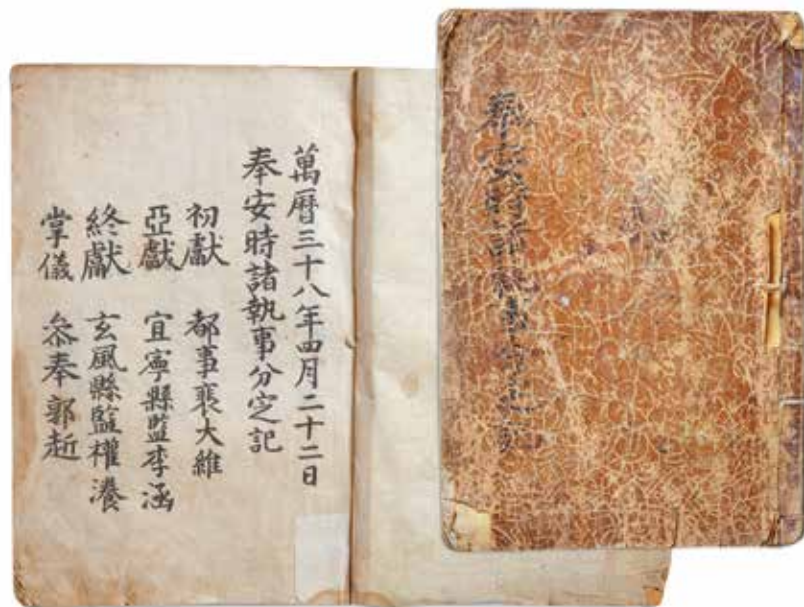 奉安時諸執事分定記
萬曆三十八年四月二十二日
奉安時諸執事分定記
初獻 都事裵大維
亞獻 宜寧縣監李涵
終獻 玄風縣監權瀁
掌儀 叅奉郭䞭